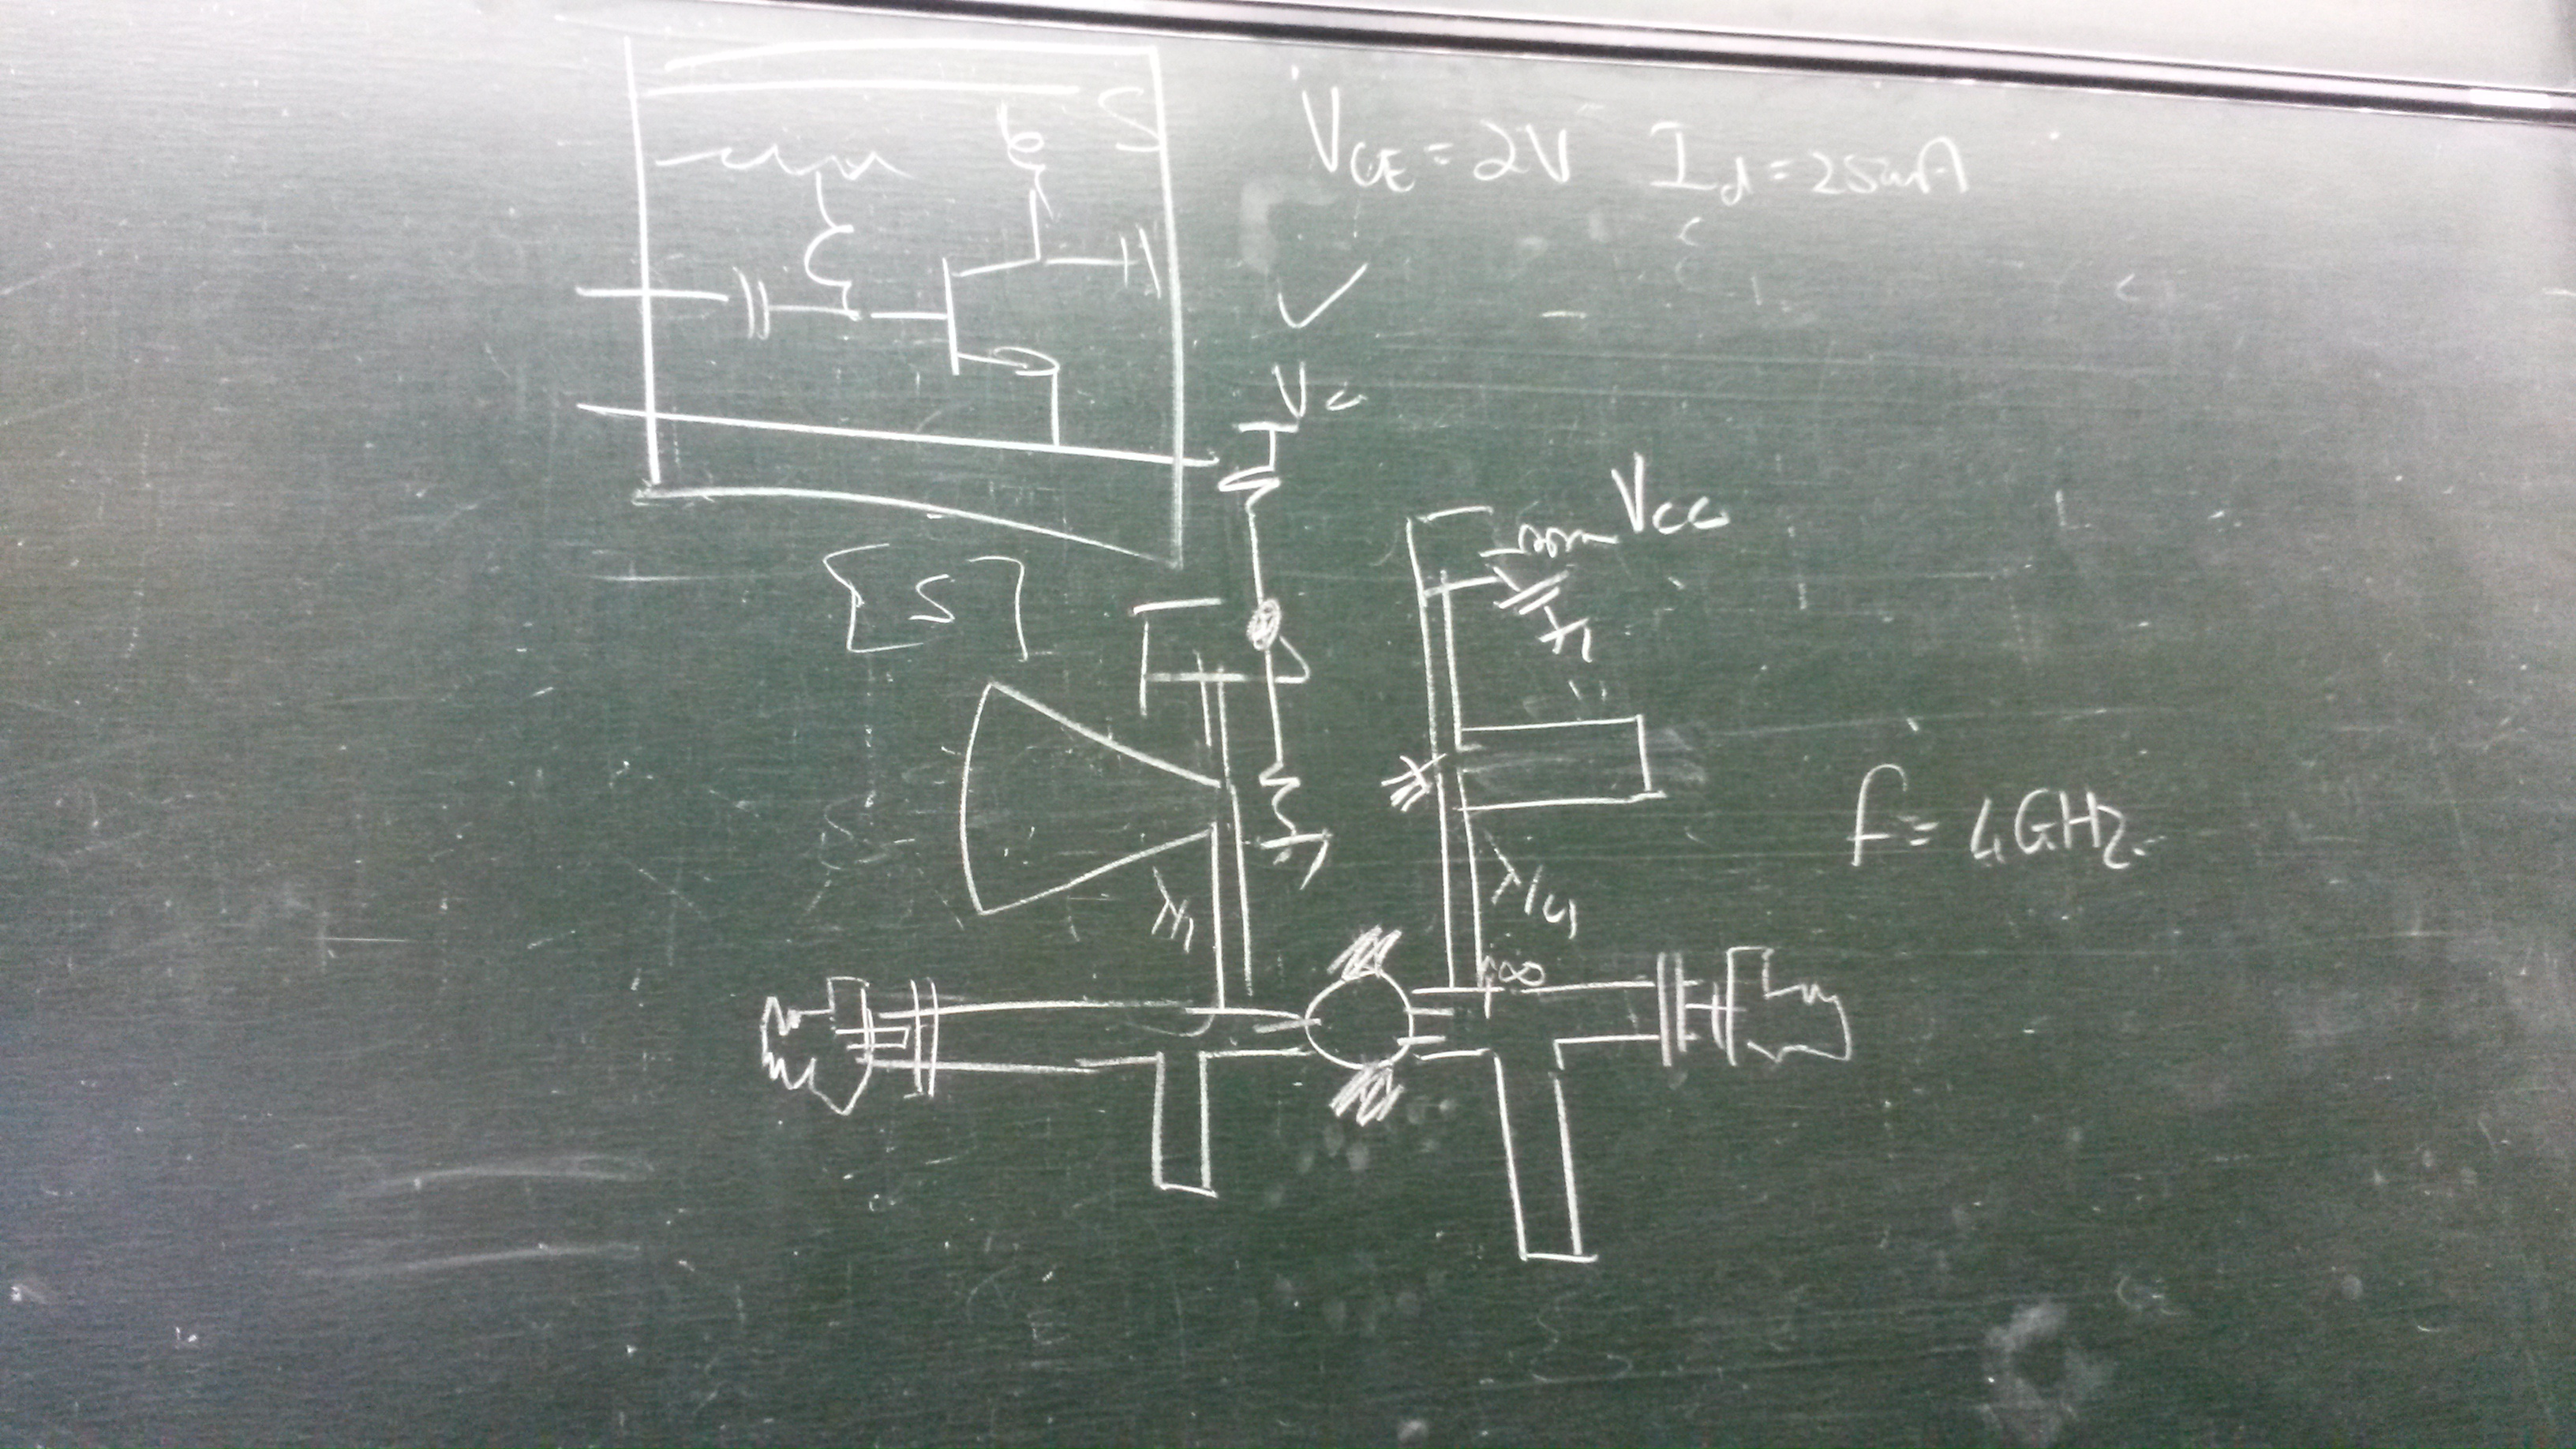 S
V_CE = 2V I_d = 25mA
V_C
V_CC
[S]
λ/4
λ/4
∞
f = 4GHz.